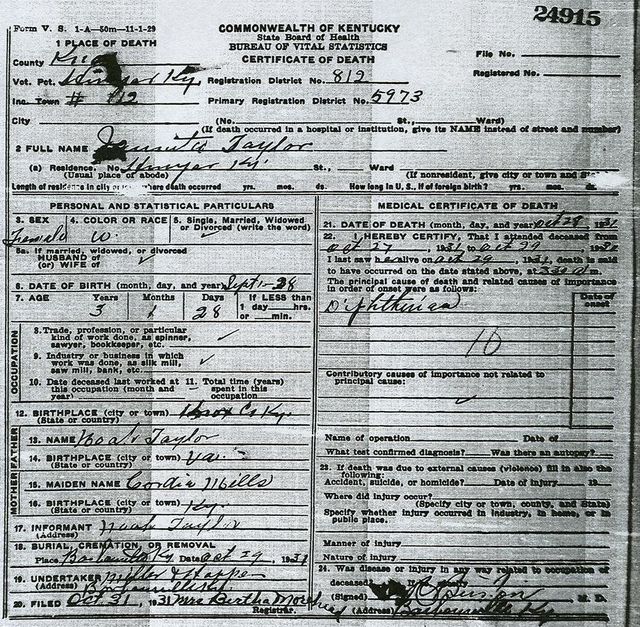 24915
Form V. S. 1-A—50m—11-1-29
COMMONWEALTH OF KENTUCKY
State Board of Health
BUREAU OF VITAL STATISTICS
CERTIFICATE OF DEATH
1 PLACE OF DEATH
County
Vot. Pct. Ky. Registration District No. 812
Inc. Town # 112 Primary Registration District No. 5973
File No.
Registered No.
City (No. St., Ward)
(If death occurred in a hospital or institution, give its NAME instead of street and number)
2 FULL NAME Taylor
(a) Residence. No. Ky. St., Ward
(Usual place of abode) (If nonresident, give city or town and State)
Length of residence in city or town where death occurred yrs. mos. ds. How long in U. S., if of foreign birth? yrs. mos. ds.
PERSONAL AND STATISTICAL PARTICULARS
3. SEX 4. COLOR OR RACE 5. Single, Married, Widowed or Divorced (write the word)
Female W.
5a. If married, widowed, or divorced
HUSBAND of
(or) WIFE of
6. DATE OF BIRTH (month, day, and year) Sept 1-28
7. AGE Years Months Days If LESS than 1 day, hrs. or min.
3 1 28
OCCUPATION
8. Trade, profession, or particular kind of work done, as spinner, sawyer, bookkeeper, etc.
9. Industry or business in which work was done, as silk mill, saw mill, bank, etc.
10. Date deceased last worked at this occupation (month and year) 11. Total time (years) spent in this occupation
12. BIRTHPLACE (city or town) Knox Co Ky.
(State or country)
FATHER
13. NAME Noah Taylor
14. BIRTHPLACE (city or town) Va.
(State or country)
MOTHER
15. MAIDEN NAME Cordia Mills
16. BIRTHPLACE (city or town) Ky.
(State or country)
17. INFORMANT Noah Taylor
(Address)
18. BURIAL, CREMATION, OR REMOVAL
Place Barbourville Ky Date Oct 29, 1931
19. UNDERTAKER
(Address) Barbourville Ky
20. FILED Oct 31, 1931 Mrs Bertha
Registrar.
MEDICAL CERTIFICATE OF DEATH
21. DATE OF DEATH (month, day, and year) Oct 28, 1931
22. I HEREBY CERTIFY, That I attended deceased from
Oct 27, 1931 to Oct 29
I last saw her alive on Oct 29, 1931, death is said
to have occurred on the date stated above, at 3:30 a m.
The principal cause of death and related causes of importance in order of onset were as follows:
Date of onset
Diphtheria
10
Contributory causes of importance not related to principal cause:
Name of operation Date of
What test confirmed diagnosis? Was there an autopsy?
23. If death was due to external causes (violence) fill in also the following:
Accident, suicide, or homicide? Date of injury 19
Where did injury occur?
(Specify city or town, county, and State)
Specify whether injury occurred in industry, in home, or in public place.
Manner of injury
Nature of injury
24. Was disease or injury in any way related to occupation of deceased?
(Signed) M. D.
(Address) Barbourville Ky